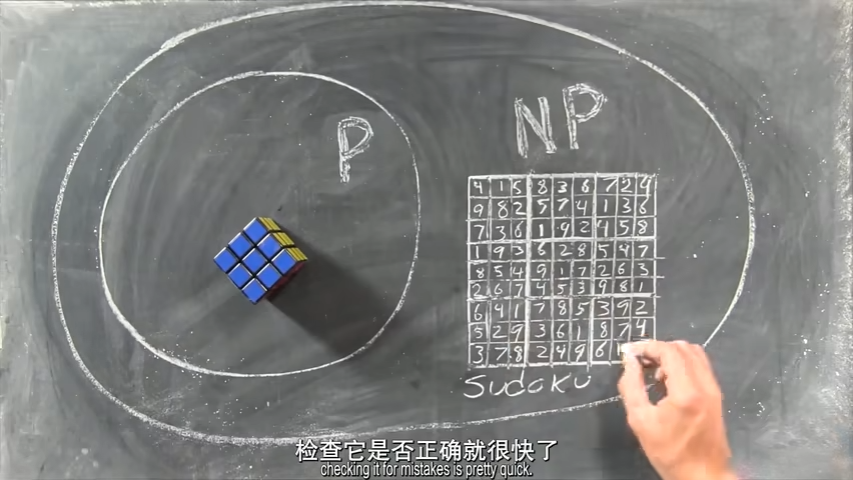 P
NP
4 1 5 8 3 6 7 2 9
9 8 2 5 7 4 1 3 6
7 3 6 1 9 2 4 5 8
1 9 3 6 2 8 5 4 7
8 5 4 9 1 7 2 6 3
2 6 7 4 5 3 9 8 1
6 4 1 7 8 5 3 9 2
5 2 9 3 6 1 8 7 4
3 7 8 2 4 9 6
Sudoku
检查它是否正确就很快了
checking it for mistakes is pretty quick.